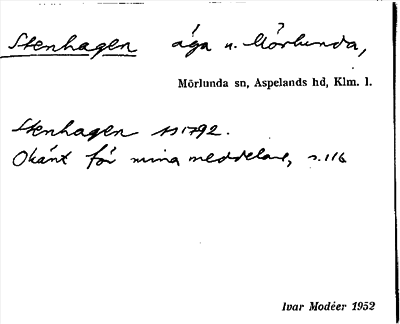 Stenhagen äga u. Mörlunda,
Mörlunda sn, Aspelands hd, Klm. l.
Stenhagen 1792.
Okänt för mina meddelare, s. 116
Ivar Modéer 1952